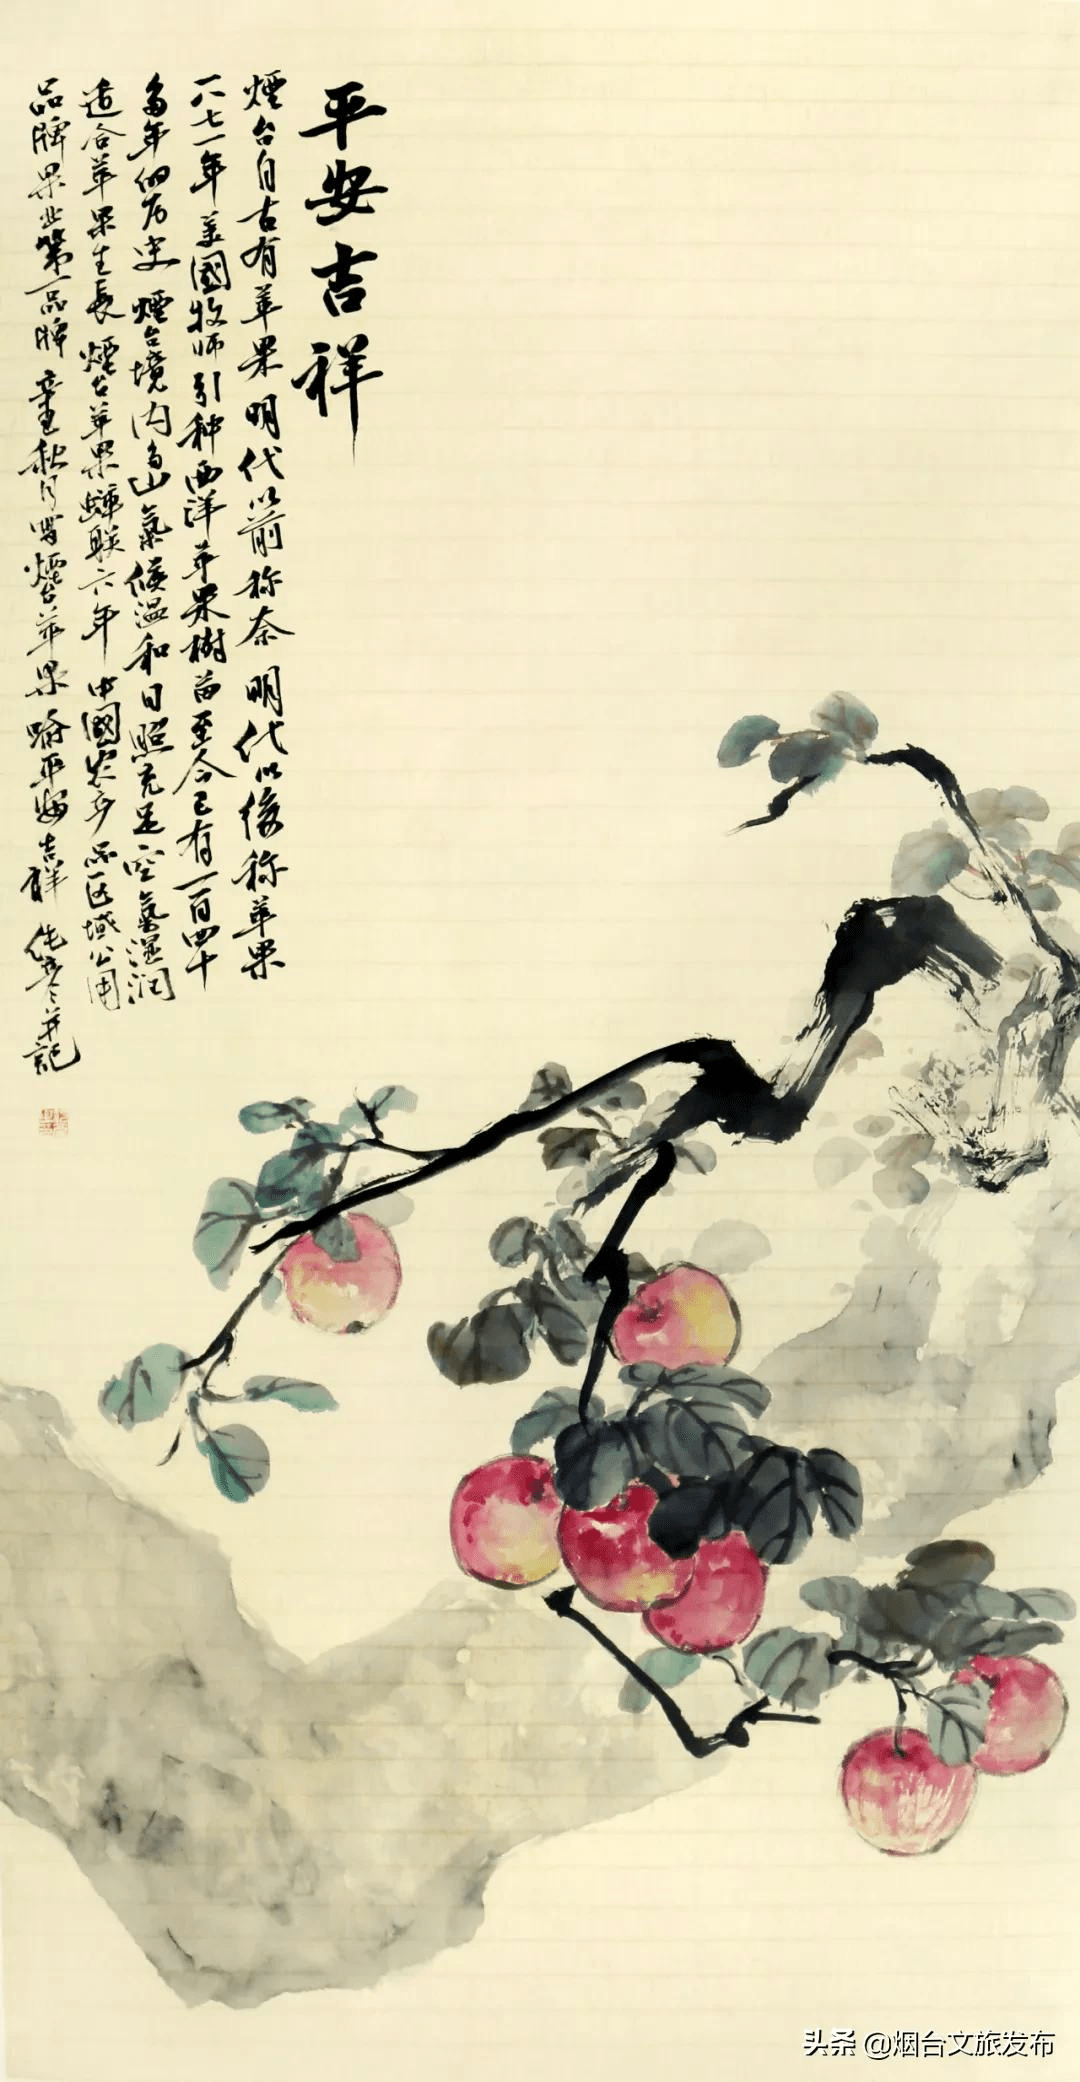 平安吉祥
煙台自古有苹果明代以前称柰明代以後称苹果
一八七一年美國牧师引种西洋苹果樹苗至今已有一百四十
多年的历史煙台境内多山氣候温和日照充足空氣湿润
适合苹果生長煙台苹果蝉联六年中國农产品区域公用
品牌果业第一品牌辛丑秋月写煙台苹果喻平安吉祥 并記
头条 @烟台文旅发布